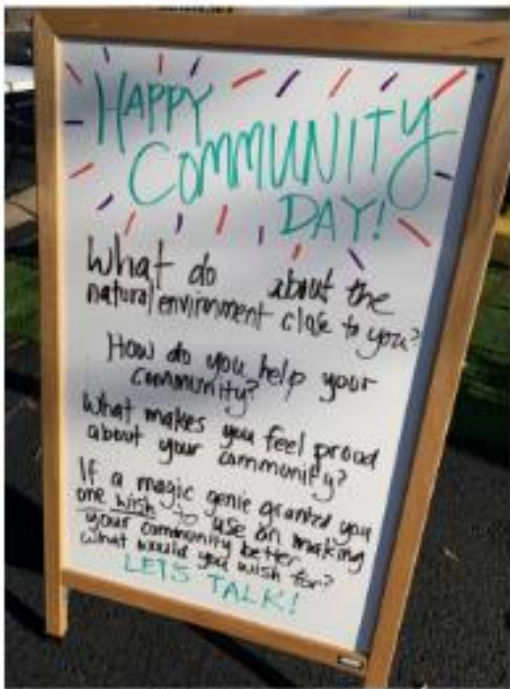 HAPPY
COMMUNITY
DAY!
What do about the
natural environment close to you?
How do you help your
community?
What makes you feel proud
about your community?
If a magic genie granted you
one wish to use on making
your community better
what would you wish for?
LET'S TALK!